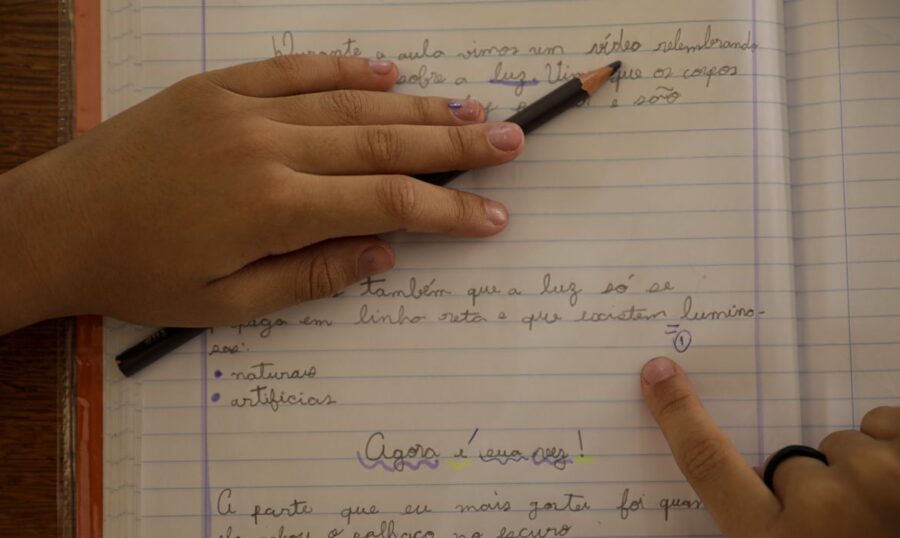 Durante a aula vimos um vídeo relembrando
sobre a luz. que os corpos
e são
também que a luz só se
em linha reta e que existem lumino-
=①
sas:
• naturais
• artificias
Agora é sua vez!
A parte que eu mais gostei foi
o palhaço no escuro